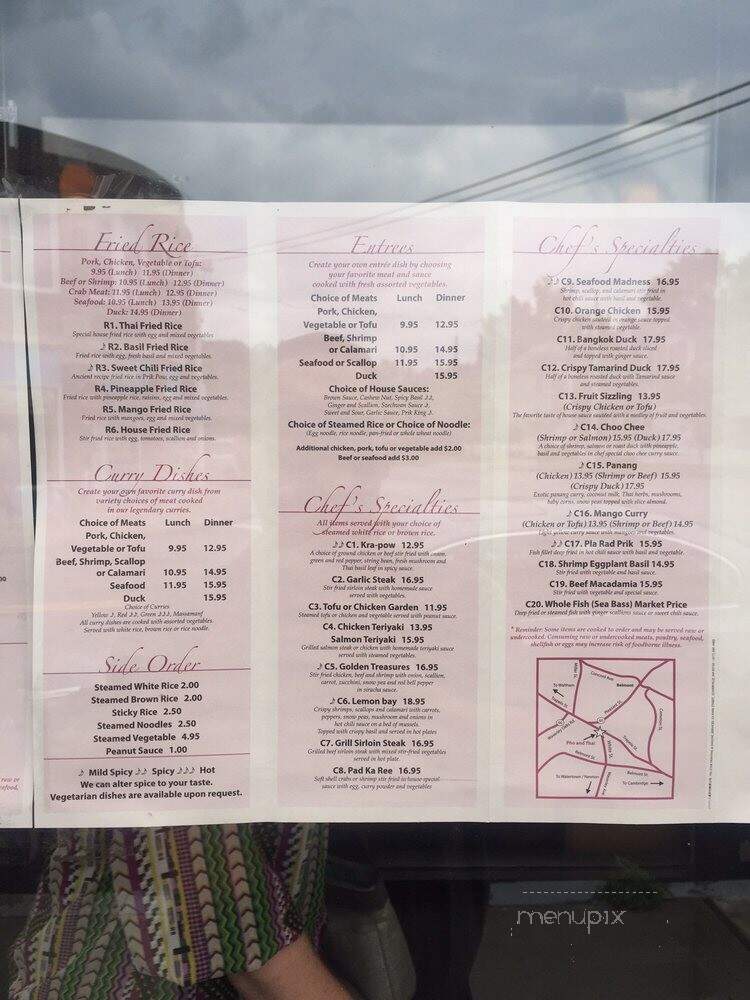 Fried Rice
Pork, Chicken, Vegetable or Tofu:
9.95 (Lunch) 11.95 (Dinner)
Beef or Shrimp: 10.95 (Lunch) 12.95 (Dinner)
Crab Meat: 11.95 (Lunch) 12.95 (Dinner)
Seafood: 10.95 (Lunch) 13.95 (Dinner)
Duck: 14.95 (Dinner)
R1. Thai Fried Rice
Special house fried rice with egg and mixed vegetables
♪ R2. Basil Fried Rice
Fried rice with egg, fresh basil and mixed vegetables.
♪ R3. Sweet Chili Fried Rice
Ancient recipe fried rice in Prik Pow, egg and vegetables.
R4. Pineapple Fried Rice
Fried rice with pineapple, raisins, egg and mixed vegetables.
R5. Mango Fried Rice
Fried rice with mangoes, egg and mixed vegetables.
R6. House Fried Rice
Stir fried rice with egg, tomatoes, scallion and onions.
Curry Dishes
Create your own favorite curry dish from
variety choices of meat cooked
in our legendary curries.
Choice of Meats Lunch Dinner
Pork, Chicken,
Vegetable or Tofu 9.95 12.95
Beef, Shrimp, Scallop
or Calamari 10.95 14.95
Seafood 11.95 15.95
Duck 15.95
Choice of Curries
Yellow ♪, Red ♪♪, Green ♪♪♪, Massamanf
All curry dishes are cooked with assorted vegetables.
Served with white rice, brown rice or rice noodle.
Side Order
Steamed White Rice 2.00
Steamed Brown Rice 2.00
Sticky Rice 2.50
Steamed Noodles 2.50
Steamed Vegetable 4.95
Peanut Sauce 1.00
♪ Mild Spicy ♪♪ Spicy ♪♪♪ Hot
We can alter spice to your taste.
Vegetarian dishes are available upon request.
Entrees
Create your own entrée dish by choosing
your favorite meat and sauce
cooked with fresh assorted vegetables.
Choice of Meats Lunch Dinner
Pork, Chicken,
Vegetable or Tofu 9.95 12.95
Beef, Shrimp
or Calamari 10.95 14.95
Seafood or Scallop 11.95 15.95
Duck 15.95
Choice of House Sauces:
Brown Sauce, Cashew Nut, Spicy Basil ♪♪,
Ginger and Scallion, Szechwan Sauce ♪,
Sweet and Sour, Garlic Sauce, Prik King ♪.
Choice of Steamed Rice or Choice of Noodle:
(Egg noodle, rice noodle, pan-fried or whole wheat noodle)
Additional chicken, pork, tofu or vegetable add $2.00
Beef or seafood add $3.00
Chef's Specialties
All items served with your choice of
steamed white rice or brown rice.
♪♪ C1. Kra-pow 12.95
A choice of ground chicken or beef stir fried with onion,
green and red pepper, string bean, fresh mushroom and
Thai basil leaf in spicy sauce.
C2. Garlic Steak 16.95
Stir fried sirloin steak with homemade sauce
served with vegetables.
C3. Tofu or Chicken Garden 11.95
Steamed tofu or chicken and vegetable served with peanut sauce.
C4. Chicken Teriyaki 13.95
Salmon Teriyaki 15.95
Grilled salmon steak or chicken with homemade teriyaki sauce
served with steamed vegetables.
♪ C5. Golden Treasures 16.95
Stir fried chicken, beef and shrimp with onion, scallion,
carrot, zucchini, snow pea and red bell pepper
in siracha sauce.
♪ C6. Lemon bay 18.95
Crispy shrimps, scallops and calamari with carrots,
peppers, snow peas, mushroom and onions in
hot chili sauce on a bed of mussels.
Topped with crispy basil and served in hot plates
C7. Grill Sirloin Steak 16.95
Grilled beef sirloin steak with mixed stir-fried vegetables
served in hot plate.
C8. Pad Ka Ree 16.95
Soft shell crabs or shrimp stir fried in house special
sauce with egg, curry powder and vegetables
Chef's Specialties
♪♪ C9. Seafood Madness 16.95
Shrimp, scallop, and calamari stir fried in
hot chili sauce with basil and vegetable.
C10. Orange Chicken 15.95
Crispy chicken sautéed in orange sauce topped
with steamed vegetable.
C11. Bangkok Duck 17.95
Half of a boneless roasted duck sliced
and topped with ginger sauce.
C12. Crispy Tamarind Duck 17.95
Half of a boneless roasted duck with Tamarind sauce
and steamed vegetables.
C13. Fruit Sizzling 13.95
(Crispy Chicken or Tofu)
The favorite taste of house sauce sautéed with a medley of fruit and vegetables.
♪ C14. Choo Chee
(Shrimp or Salmon) 15.95 (Duck) 17.95
A choice of shrimp, salmon or roast duck with pineapple,
basil and vegetables in chef special choo chee curry sauce.
♪ C15. Panang
(Chicken) 13.95 (Shrimp or Beef) 15.95
(Crispy Duck) 17.95
Exotic panang curry, coconut milk, Thai herbs, mushrooms,
baby corns, snow peas topped with slice almond.
♪ C16. Mango Curry
(Chicken or Tofu) 13.95 (Shrimp or Beef) 14.95
Light yellow curry sauce with mangoes and vegetables.
♪♪ C17. Pla Rad Prik 15.95
Fish fillet deep fried in hot chili sauce with basil and vegetable.
C18. Shrimp Eggplant Basil 14.95
Stir fried with vegetable and basil sauce.
C19. Beef Macadamia 15.95
Stir fried with vegetable and special sauce.
C20. Whole Fish (Sea Bass) Market Price
Deep fried or steamed fish with ginger scallions sauce or sweet chili sauce.
* Reminder: Some items are cooked to order and may be served raw or
undercooked. Consuming raw or undercooked meats, poultry, seafood,
shellfish or eggs may increase risk of foodborne illness.
To Waltham
Concord Ave
Belmont
Pleasant St.
Trapelo Rd
Waverley Oaks Rd
Common St.
Pho and Thai
White St.
Trapelo St.
Belmont St.
To Watertown / Newton
To Cambridge
menupix